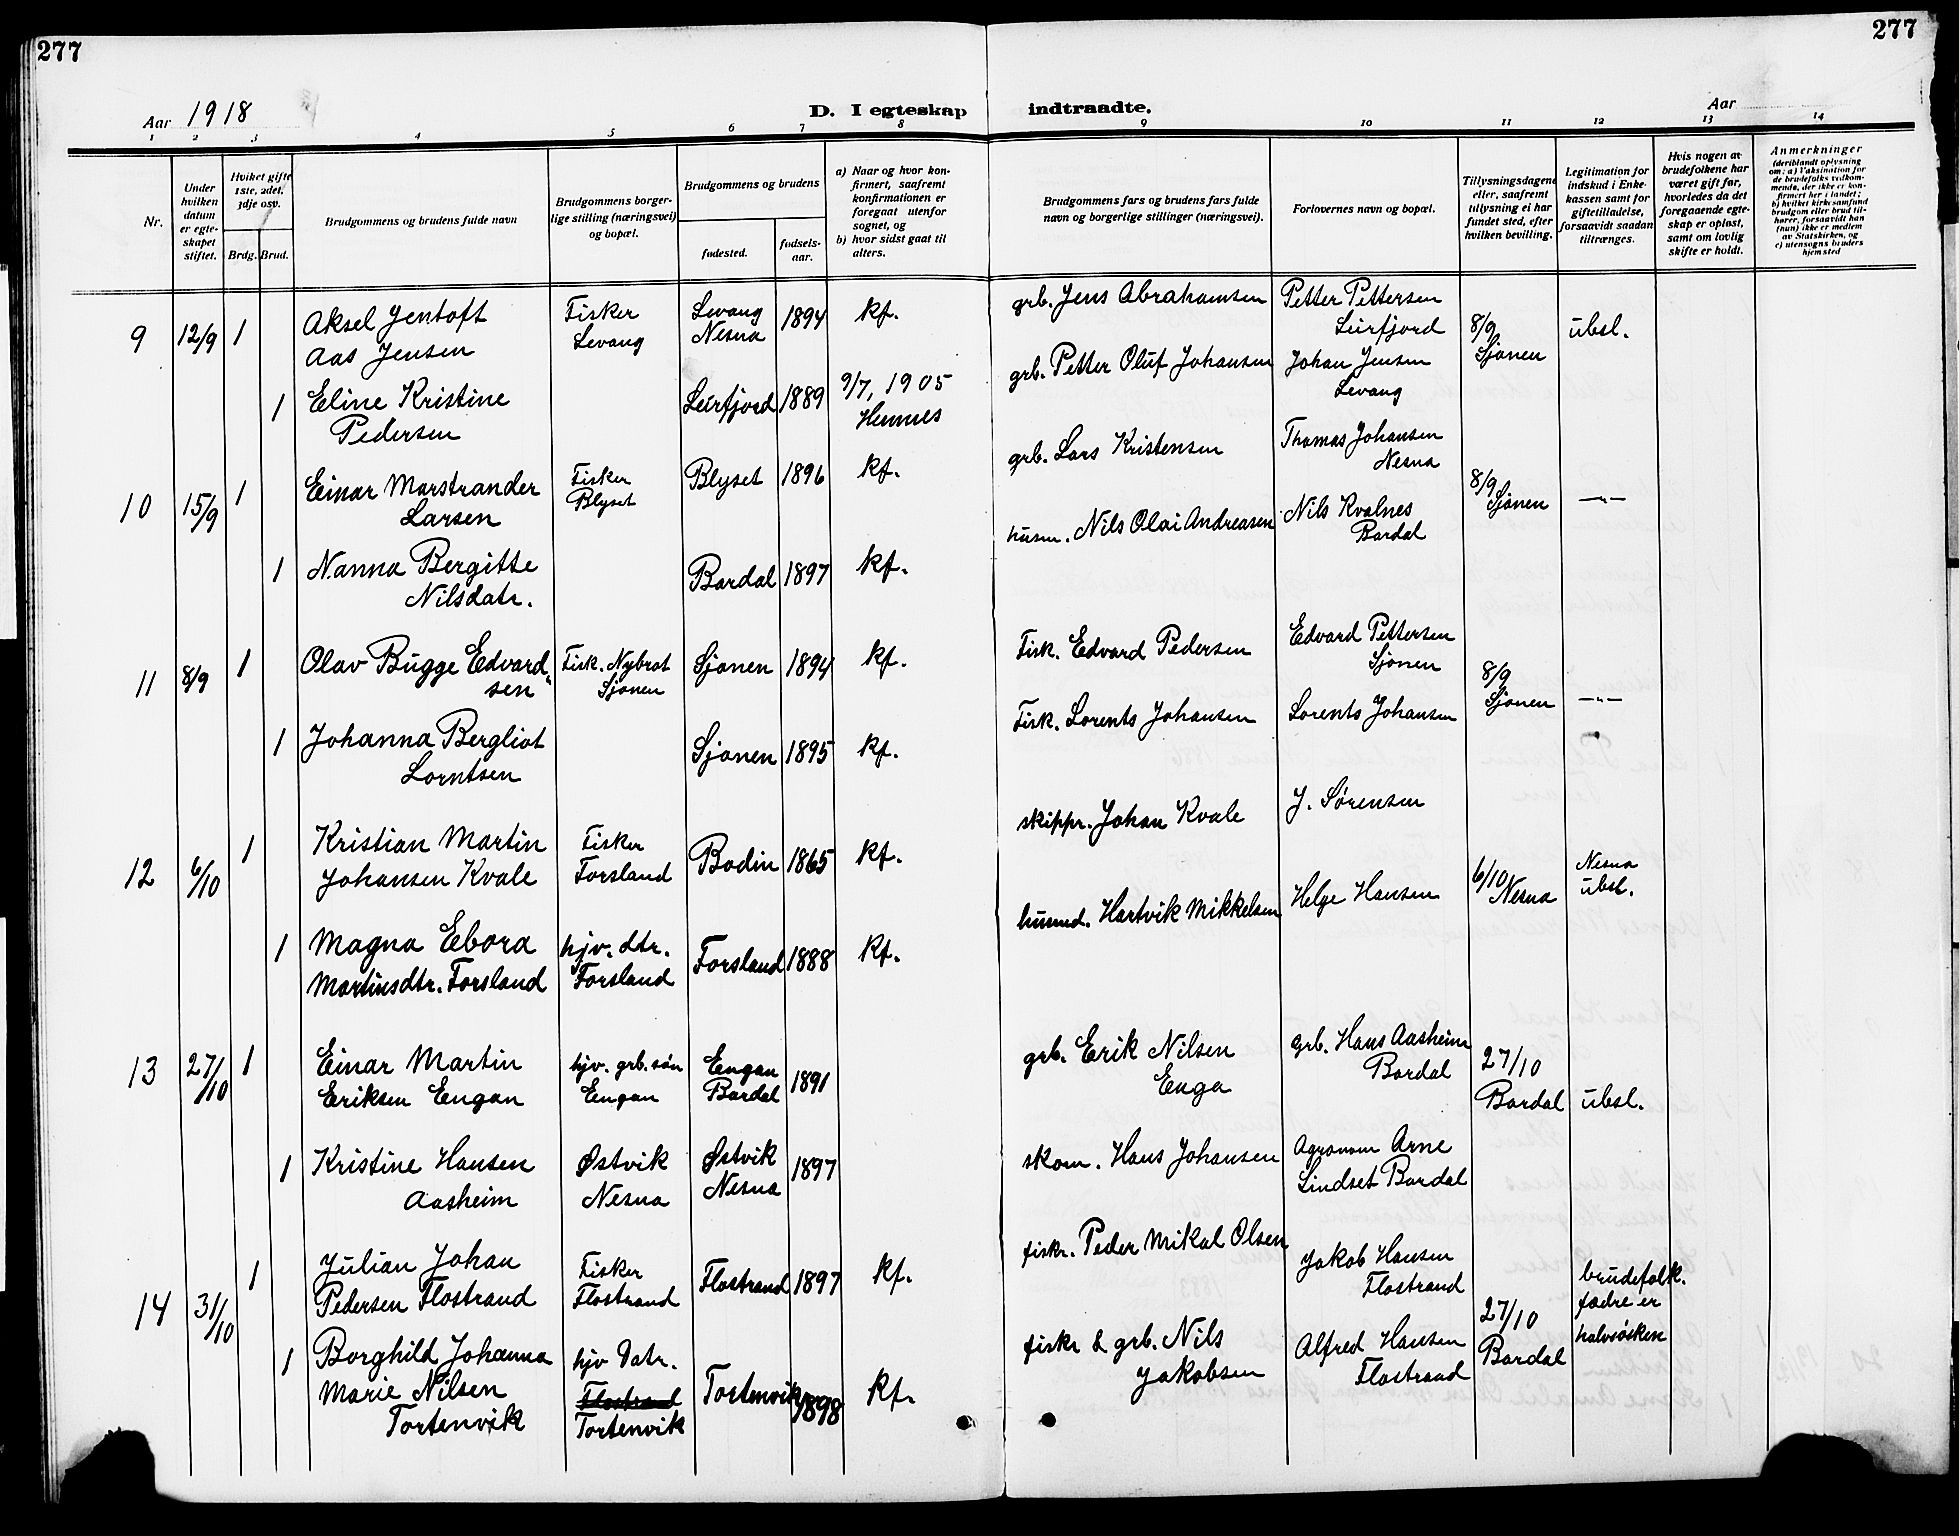 277
277
Aar 1918
D. I egteskap indtraadte.
Aar
1 2 3 4 5 6 7 8 9 10 11 12 13 14
Nr.
Under
hvilken
datum
er egte-
skapet
stiftet.
Hvilket gifte
1ste, 2det.
3dje osv.
Brdg. Brud.
Brudgommens og brudens fulde navn
Brudgommens borger-
lige stilling (næringsvei)
og bopæl.
Brudgommens og brudens
fødested.
fødsels-
aar.
a) Naar og hvor kon-
firmert, saafremt
konfirmationen er
foregaat utenfor
sognet, og
b) hvor sidst gaat til
alters.
Brudgommens fars og brudens fars fulde
navn og borgerlige stillinger (næringsvei).
Forlovernes navn og bopæl.
Tillysningsdagene
eller, saafremt
tillysning ei har
fundet sted, efter
hvilken bevilling.
Legitimation for
indskud i Enke-
kassen samt for
giftetilladelse,
forsaavidt saadan
tiltrænges.
Hvis nogen av
brudefolkene har
været gift før,
hvorledes da det
foregaaende egte-
skap er opløst,
samt om lovlig
skifte er holdt.
Anmerkninger
(deriblandt oplysning
om: a) Vaksination for
de brudefolks vedkom-
mende, der ikke er kon-
firmert her i landet;
b) hvilket kirkesamfund
brudgom eller brud til-
hører, forsaavidt han
(hun) ikke er medlem
av Statskirken, og
c) utensogns bruders
hjemsted
9 12/9 1
Aksel Jentoft
Aas Jensen
Fisker
Levang
Levang
Nesna
1894
kf.
grb. Jens Abrahamsen
Petter Pettersen
Leirfjord
8/9
Sjonen
ubsl.
1
Eline Kristine
Pedersen
Leirfjord
1889
9/7, 1905
Hemnes
grb. Petter Oluf Johansen
Johan Jensen
Levang
10 15/9 1
Einar Marstrander
Larsen
Fisker
Blyset
Blyset
1896
kf.
grb. Lars Kristensen
Thomas Johansen
Nesna
8/9
Sjonen
—"—
1
Nanna Bergitte
Nilsdatr.
Bardal
1897
kf.
husm. Nils Olai Andreasen
Nils Kvalnes
Bardal
11 8/9 1
Olav Bugge Edvard-
sen
Fisk. Nybrot
Sjonen
Sjonen
1894
kf.
Fisk. Edvard Pedersen
Edvard Pettersen
Sjonen
8/9
Sjonen
—"—
1
Johanna Bergliot
Lorntsen
Sjonen
1895
kf.
Fisk. Lorents Johansen
Lorents Johansen
12 6/10 1
Kristian Martin
Johansen Kvale
Fisker
Forsland
Bodin
1865
kf.
skippr. Johan Kvale
J. Sørensen
6/10
Nesna
Nesna
ubsl.
1
Magna Ebora
Martinsdtr. Forsland
hjv. dtr.
Forsland
Forsland
1888
kf.
husmd. Hartvik Mikkelsen
Helge Hansen
13 27/10 1
Einar Martin
Eriksen Engan
hjv. grb. søn
Engan
Engan
Bardal
1891
grb. Erik Nilsen
Enga
grb. Hans Aasheim
Bardal
27/10
Bardal
ubsl.
1
Kristine Hansen
Aasheim
Østvik
Nesna
Østvik
Nesna
1897
skom. Hans Johansen
Agronom Arne
Lindset Bardal
14 31/10 1
Julian Johan
Pedersen Flostrand
Fisker
Flostrand
Flostrand
1897
kf.
fiskr. Peder Mikal Olsen
Jakob Hansen
Flostrand
27/10
Bardal
brudefolk.
fædre er
halvsøsken
1
Borghild Johanna
Marie Nilsen
Tortenvik
hjv Datr.
Flostrand
Tortenvik
Tortenvik
1898
kf.
fiskr & grb. Nils
Jakobsen
Alfred Hansen
Flostrand